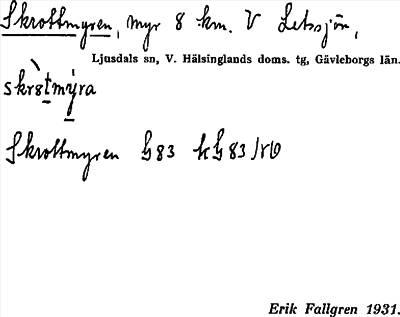 Skrottmyren, myr 8 km. V Letssjön,
Ljusdals sn, V. Hälsinglands doms. tg, Gävleborgs län.
skròtmýra
Skrottmyren 83 83
Erik Fallgren 1931.